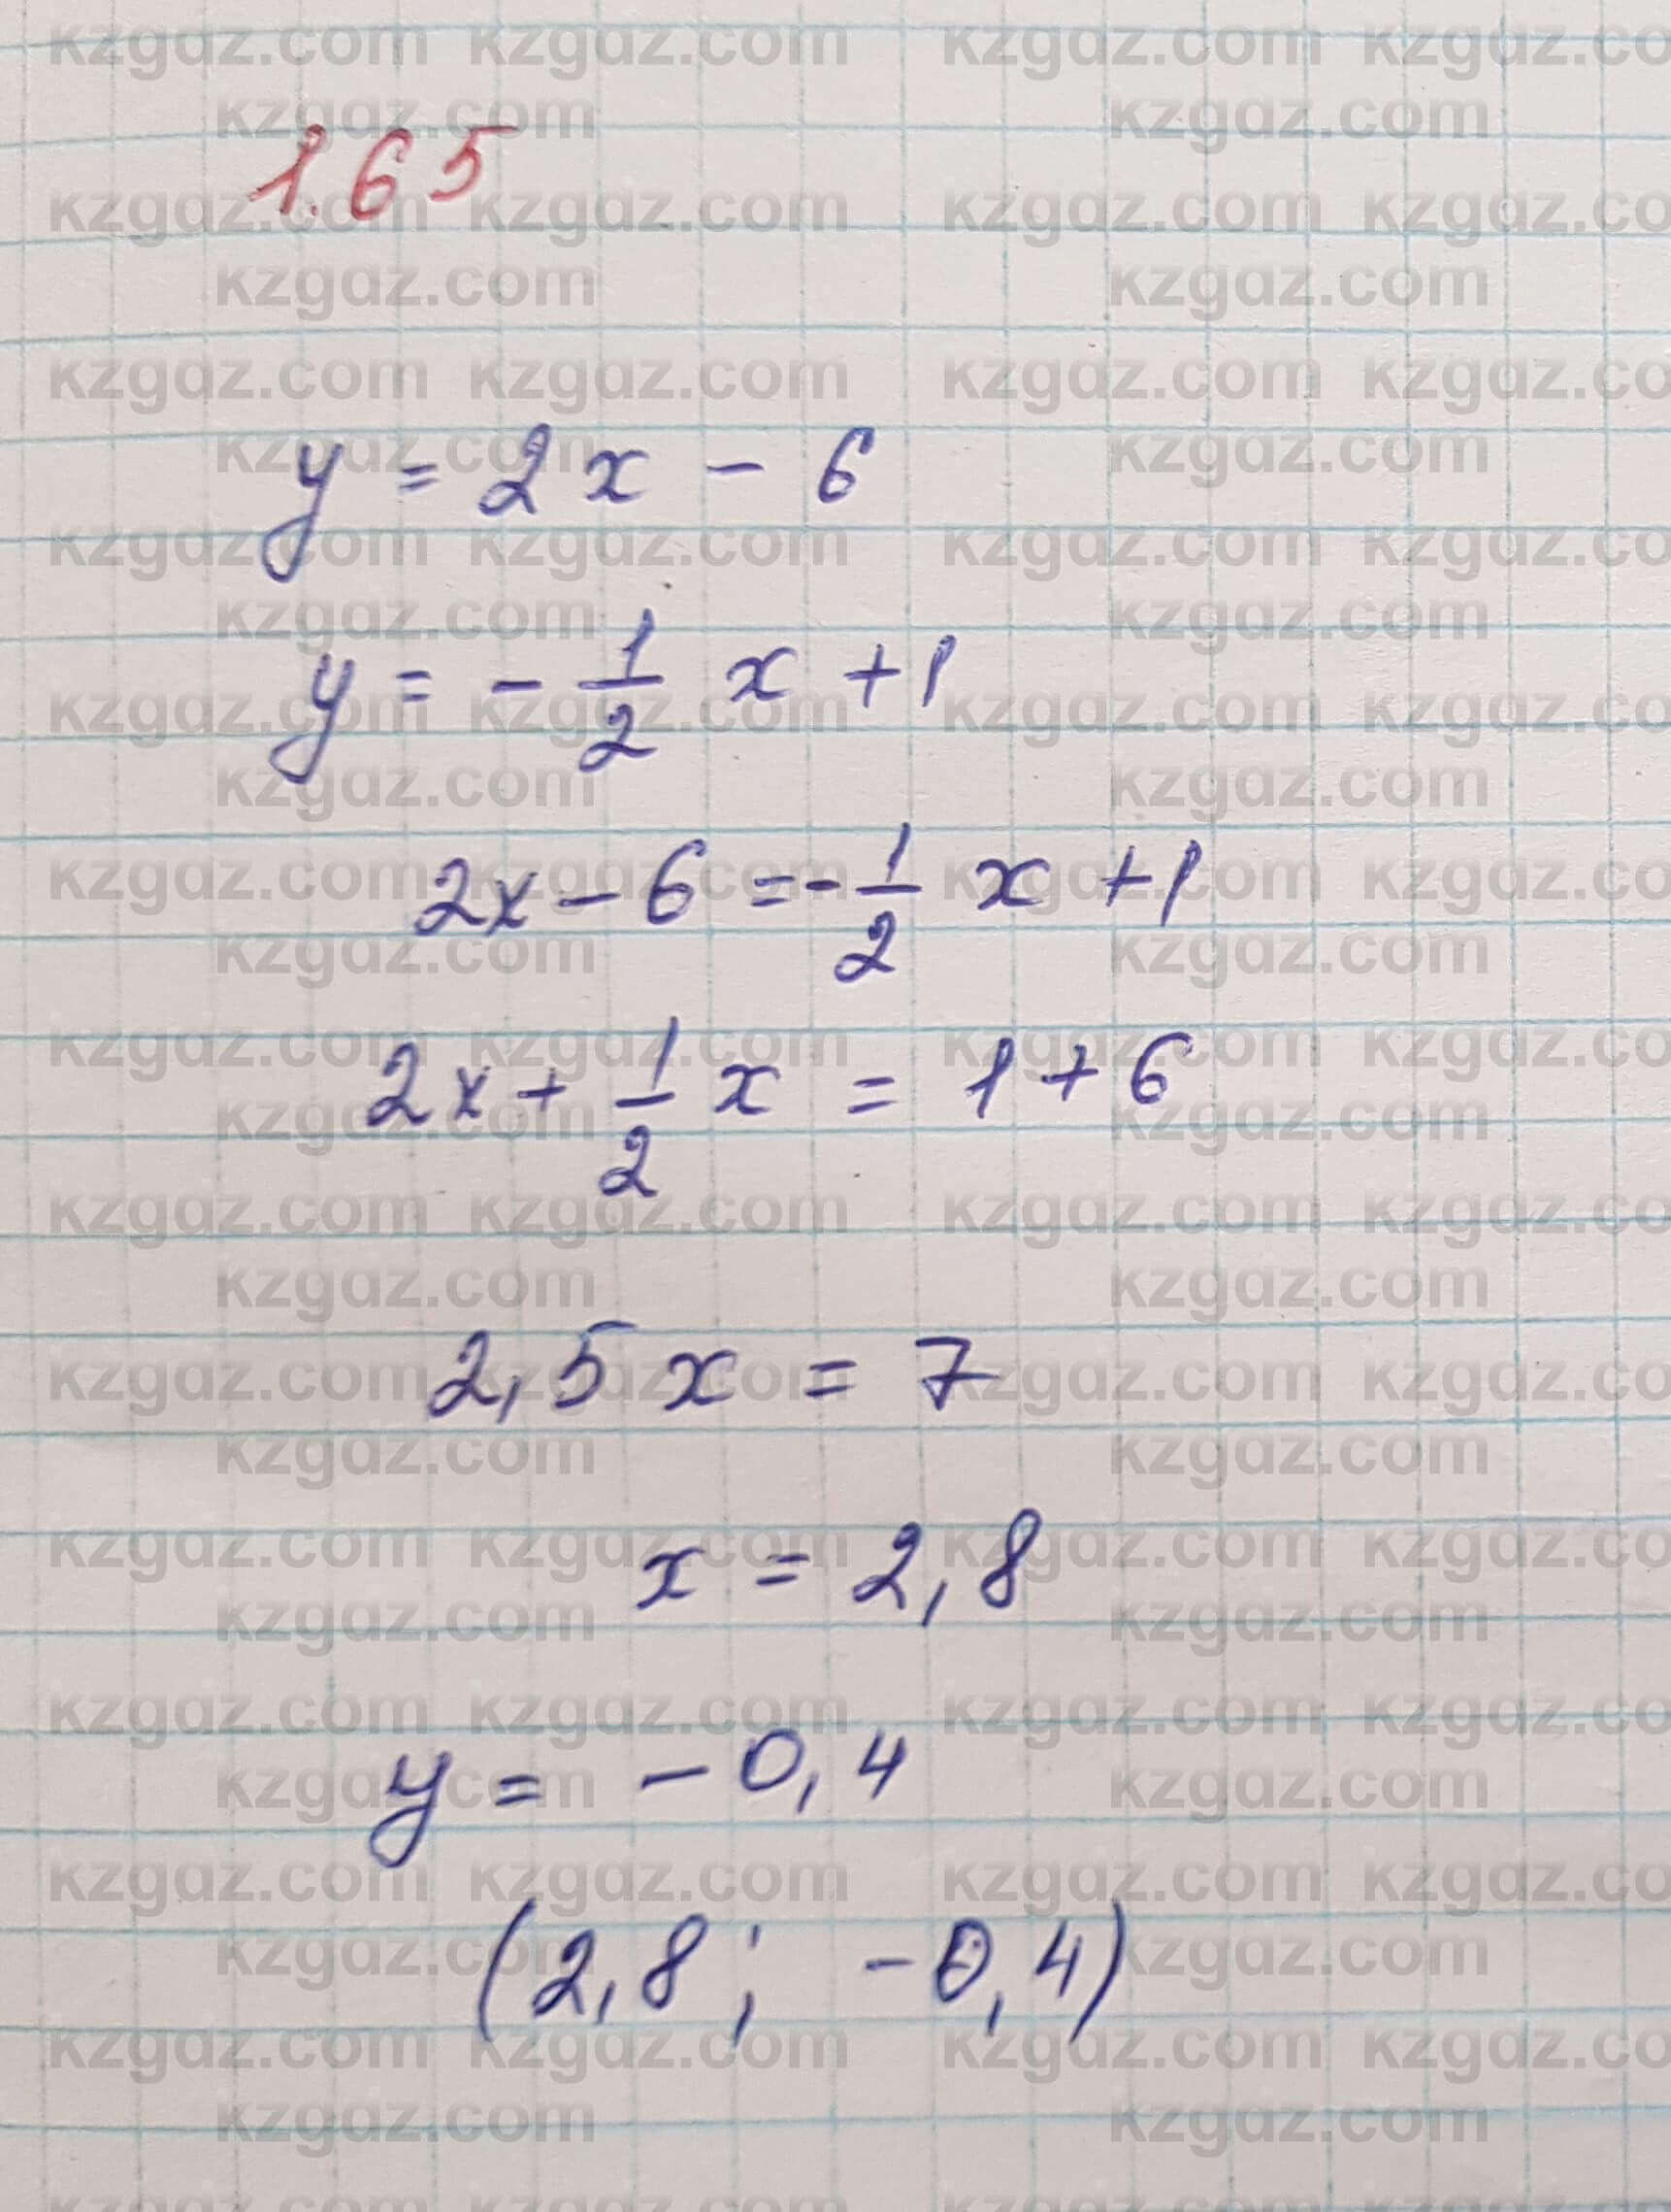 1.65
y = 2x - 6
y = - 1/2 x + 1
2x - 6 = - 1/2 x + 1
2x + 1/2 x = 1 + 6
2,5x = 7
x = 2,8
y = - 0,4
(2,8; -0,4)
kzgdz.com